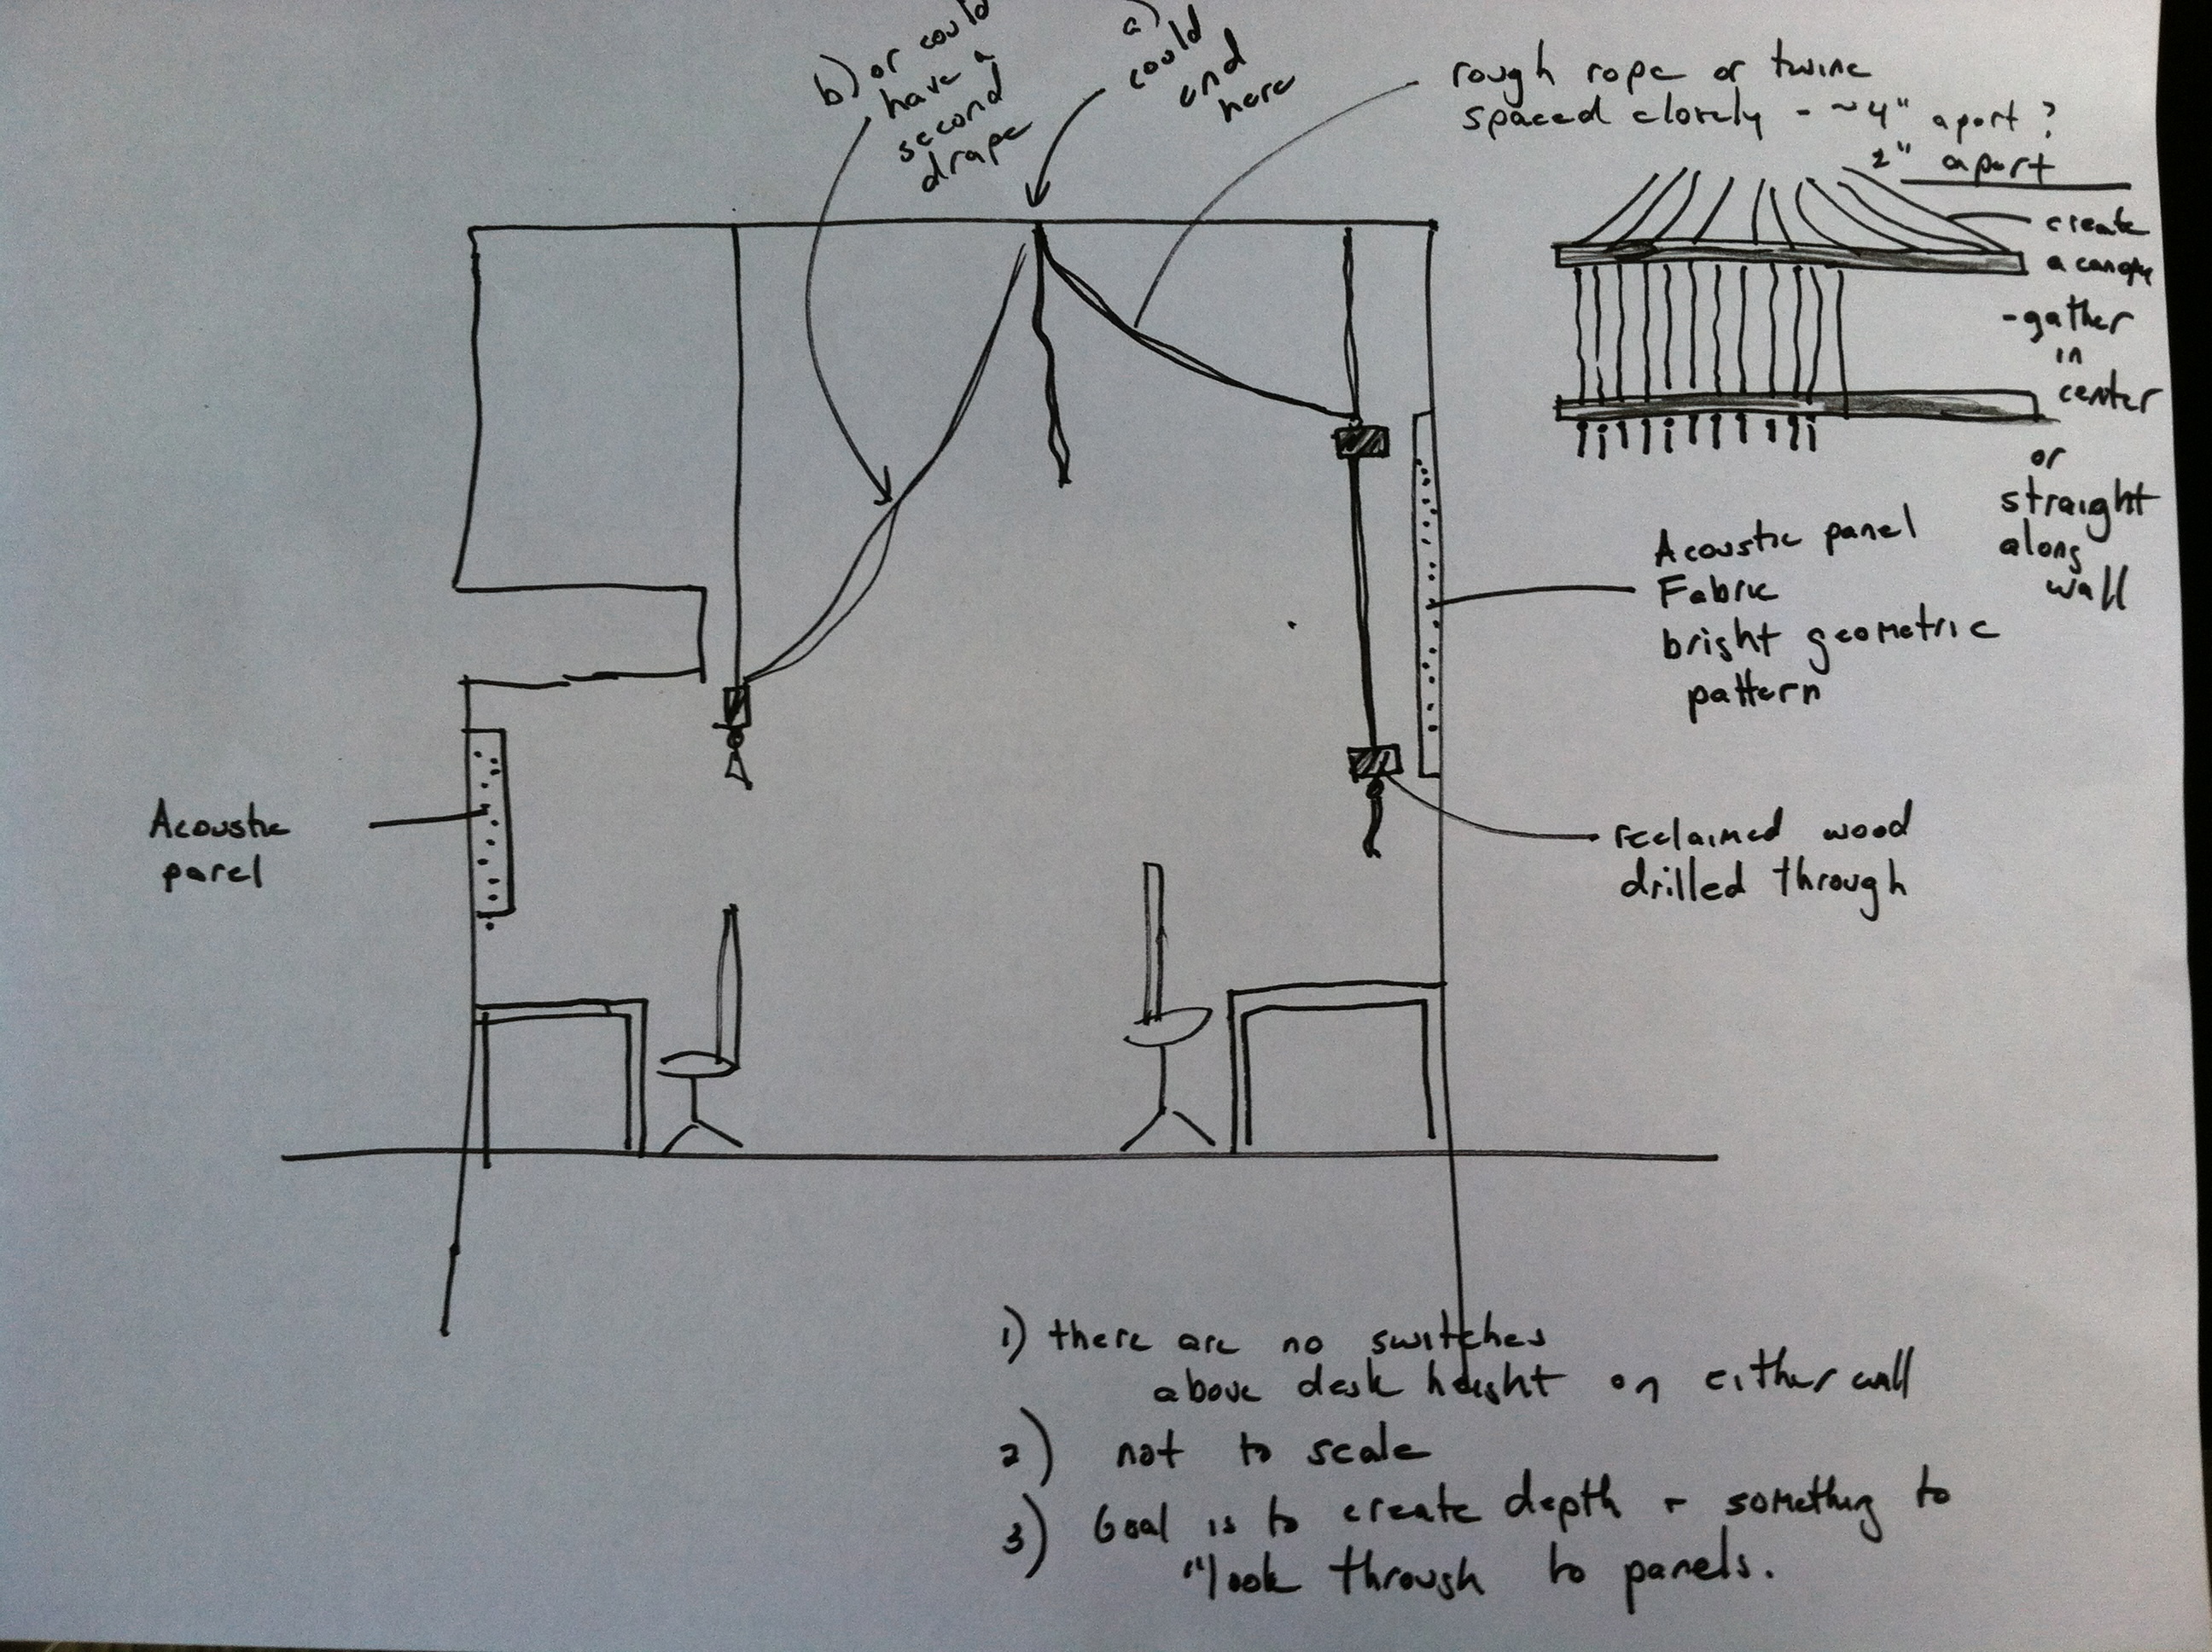 b) or could
have a
second
drape
a)
could
end
here
rough rope or twine
spaced closely - ~4" apart?
2" apart
create
a canopy
- gather
in
center
or
straight
along
wall
Acoustic panel
Fabric
bright geometric
pattern
Acoustic
panel
reclaimed wood
drilled through
1) there are no switches
above desk height on either wall
2) not to scale
3) Goal is to create depth + something to
"look through to panels.